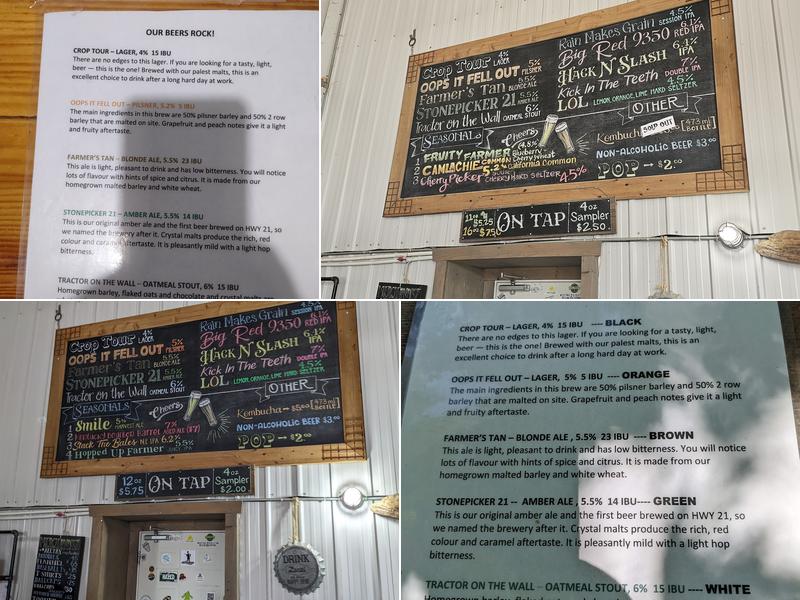 OUR BEERS ROCK!
CROP TOUR – LAGER, 4% 15 IBU
There are no edges to this lager. If you are looking for a tasty, light,
beer — this is the one! Brewed with our palest malts, this is an
excellent choice to drink after a long hard day at work.
OOPS IT FELL OUT – PILSNER, 5.2% 5 IBU
The main ingredients in this brew are 50% pilsner barley and 50% 2 row
barley that are malted on site. Grapefruit and peach notes give it a light
and fruity aftertaste.
FARMER'S TAN – BLONDE ALE, 5.5% 23 IBU
This ale is light, pleasant to drink and has low bitterness. You will notice
lots of flavour with hints of spice and citrus. It is made from our
homegrown malted barley and white wheat.
STONEPICKER 21 – AMBER ALE, 5.5% 14 IBU
This is our original amber ale and the first beer brewed on HWY 21, so
we named the brewery after it. Crystal malts produce the rich, red
colour and caramel aftertaste. It is pleasantly mild with a light hop
bitterness.
TRACTOR ON THE WALL – OATMEAL STOUT, 6% 15 IBU
Homegrown barley, flaked oats and chocolate and crystal malts are
Crop Tour 4% LAGER
OOPS IT FELL OUT 5% PILSNER
Farmer's Tan 5.5% BLONDE ALE
STONEPICKER 21 5.5% AMBER ALE
Tractor on the Wall 6% OATMEAL STOUT
SEASONALS
Cheers
1 FRUITY FARMER Blueberry Cherry Wheat
2 CAMLACHIE COMMON 5.2% California Common
3 Cherry Picker CHERRY HARD SELTZER 4.5%
Rain Makes Grain 4.5% SESSION IPA
Big Red 9350 6.1% RED IPA
HACK N' SLASH 6.4% IPA
Kick In The Teeth 7% DOUBLE IPA
LOL LEMON, ORANGE, LIME HARD SELTZER 4.5%
OTHER
Kombucha SOLD OUT [473ml BOTTLE]
NON-ALCOHOLIC BEER $3.00
POP – $2.00
ON TAP
4oz Sampler $2.50
Crop Tour 4% LAGER
OOPS IT FELL OUT 5% PILSNER
Farmer's Tan 5.5% BLONDE ALE
STONEPICKER 21 5.5% AMBER ALE
Tractor on the Wall 6% OATMEAL STOUT
SEASONALS
Cheers
1 Smile 5% HARVEST ALE
2 Kentucky Bourbon Barrel AGED ALE ($7)
3 Stack The Bales NE IPA 6.2%
4 Hopped Up Farmer JUICY IPA
Rain Makes Grain 4.5% SESSION IPA
Big Red 9350 6.1% RED IPA
HACK N' SLASH 6.4% IPA
Kick In The Teeth 7% DOUBLE IPA
LOL LEMON, ORANGE, LIME HARD SELTZER 4.5%
OTHER
Kombucha – $5.00 [473ml BOTTLE]
NON-ALCOHOLIC BEER $3.00
POP – $2.00
12oz $5.75
ON TAP
4oz Sampler $2.00
DRINK
CROP TOUR – LAGER, 4% 15 IBU ---- BLACK
There are no edges to this lager. If you are looking for a tasty, light,
beer — this is the one! Brewed with our palest malts, this is an
excellent choice to drink after a long hard day at work.
OOPS IT FELL OUT – LAGER, 5% 5 IBU---- ORANGE
The main ingredients in this brew are 50% pilsner barley and 50% 2 row
barley that are malted on site. Grapefruit and peach notes give it a light
and fruity aftertaste.
FARMER'S TAN – BLONDE ALE , 5.5% 23 IBU ---- BROWN
This ale is light, pleasant to drink and has low bitterness. You will notice
lots of flavour with hints of spice and citrus. It is made from our
homegrown malted barley and white wheat.
STONEPICKER 21 -- AMBER ALE , 5.5% 14 IBU---- GREEN
This is our original amber ale and the first beer brewed on HWY 21, so
we named the brewery after it. Crystal malts produce the rich, red
colour and caramel aftertaste. It is pleasantly mild with a light hop
bitterness.
TRACTOR ON THE WALL – OATMEAL STOUT, 6% 15 IBU ---- WHITE